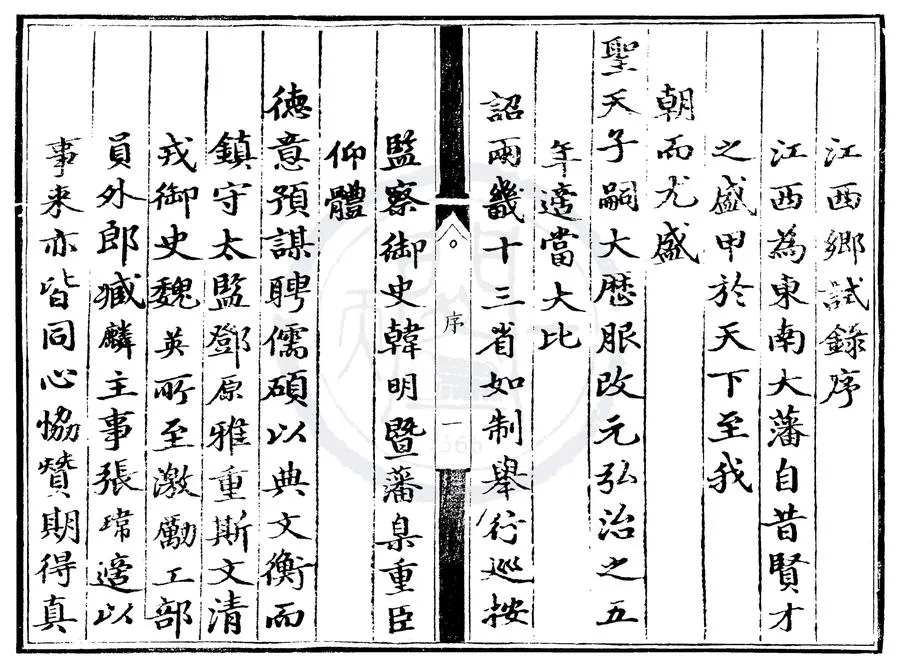 江西鄉試錄序
江西為東南大藩自昔賢才
之盛甲於天下至我
朝而尤盛
聖天子嗣大歷服改元弘治之五
年適當大比
詔兩畿十三省如制舉行巡按
序
一
監察御史韓明暨藩臬重臣
仰體
德意預謀聘儒碩以典文衡而
鎮守太監鄧原雅重斯文清
戎御史魏英所至激勵工部
員外郎臧麟主事張瑋適以
事来亦皆同心恊贊期得真